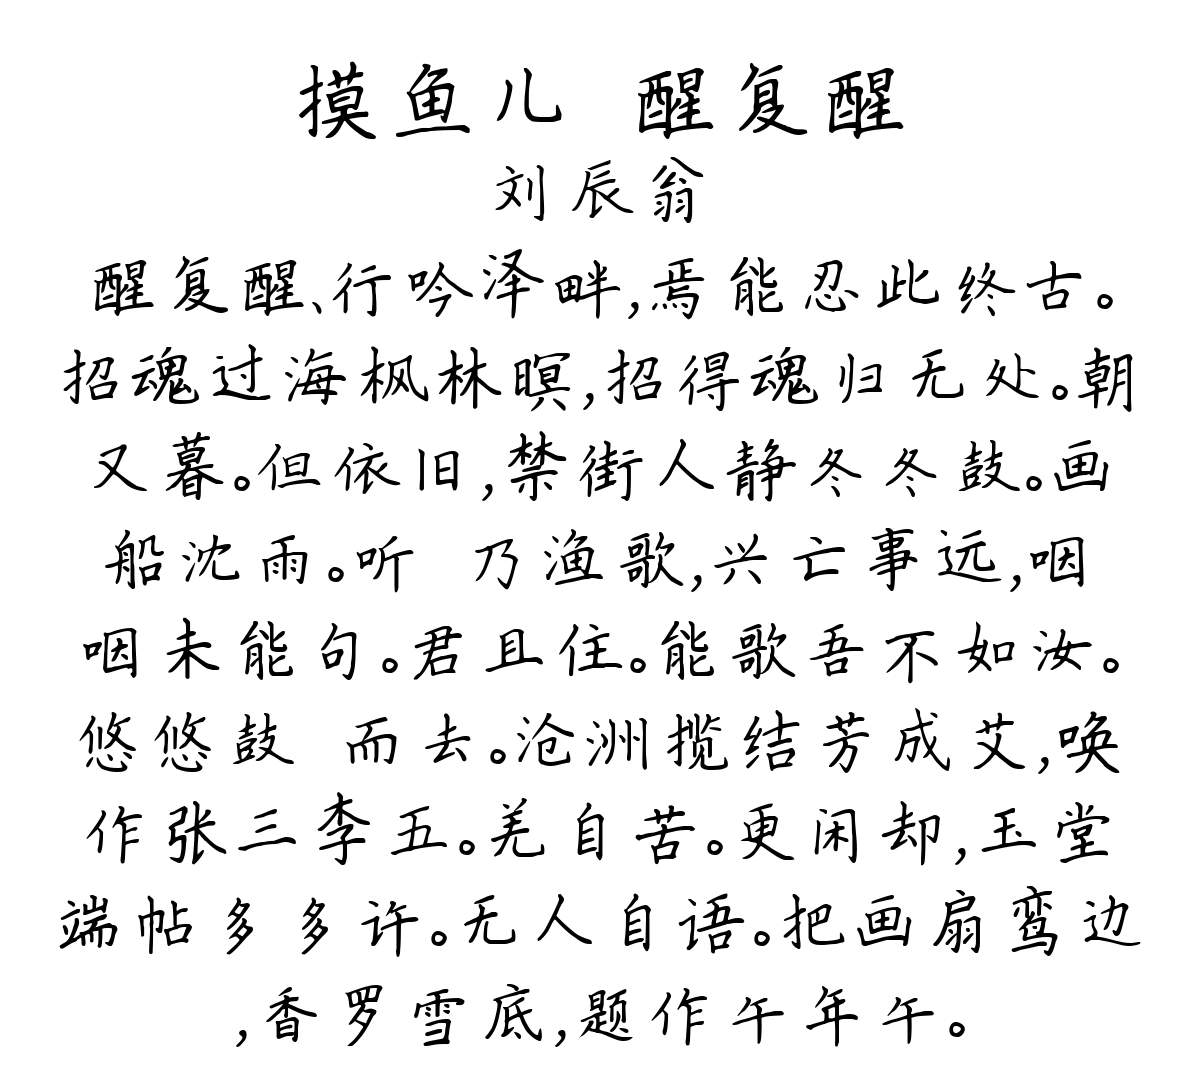 摸鱼儿 醒复醒
刘辰翁
醒复醒、行吟泽畔,焉能忍此终古。
招魂过海枫林暝,招得魂归无处。朝
又暮。但依旧,禁街人静冬冬鼓。画
船沈雨。听 乃渔歌,兴亡事远,咽
咽未能句。君且住。能歌吾不如汝。
悠悠鼓 而去。沧洲揽结芳成艾,唤
作张三李五。羌自苦。更闲却,玉堂
端帖多多许。无人自语。把画扇鸾边
,香罗雪底,题作午年午。